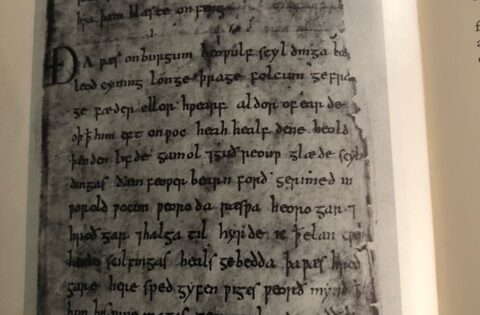 hƿa þæm hlæste onfeng
ĐA ƿæs onburgum beoƿulf scyldinga
leod cyning longe þrage folcum gefræ
ge fæder ellor hƿearf aldor of earde
oþ ꝥ him eft onƿoc heah healfdene heold
þenden lifde gamol ⁊ guð reouƿ glæde scyl
dingas ðæm feoƿer bearn forð gerimed in
ƿorold ƿocun ƿeoroda ræsƿa heorogar ⁊
hroðgar ⁊ halga til hyrde ic ꝥ elan
scilfingas heals gebedda þa ƿæs hroð
gare here sped gyfen ƿiges ƿeorð mynd ꝥ
him his ƿine magas